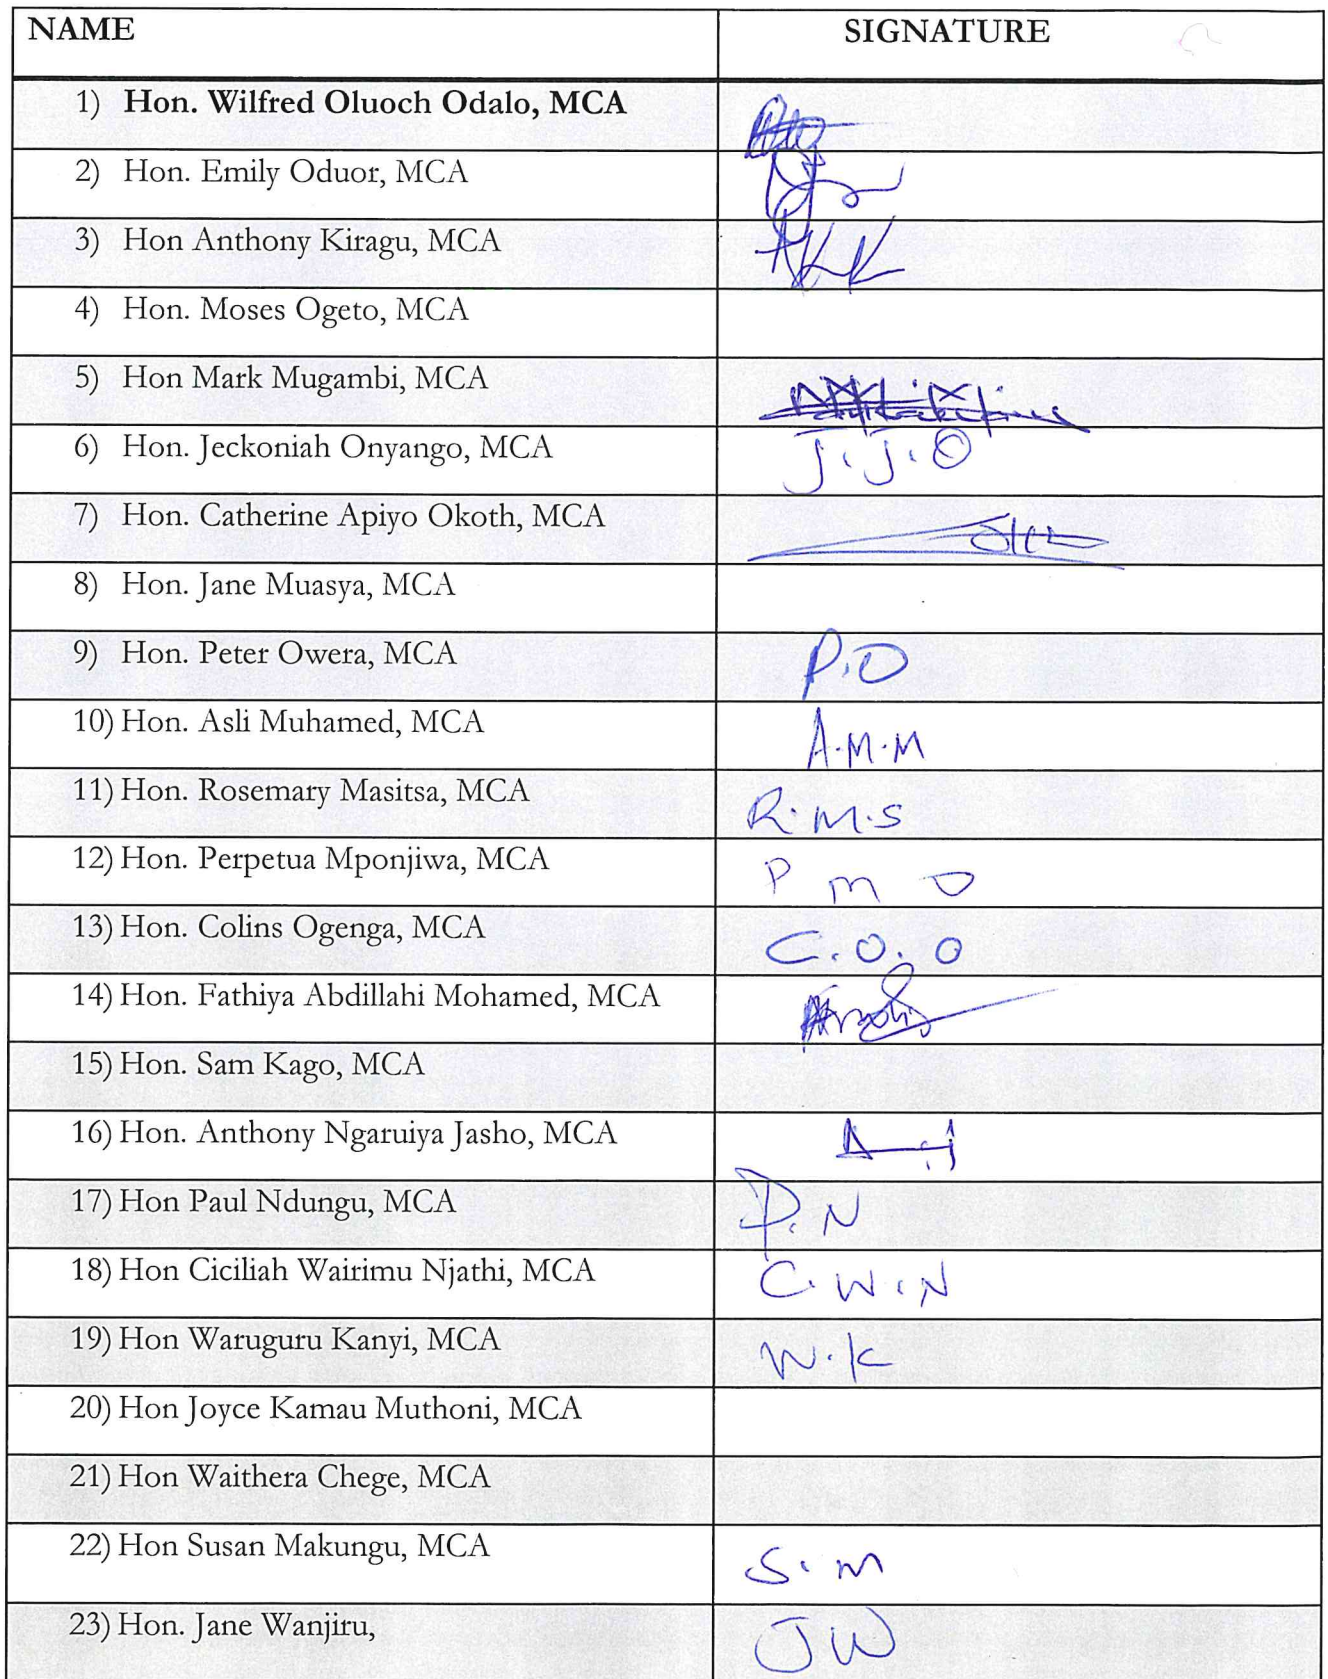 NAME SIGNATURE
1) Hon. Wilfred Oluoch Odalo, MCA
2) Hon. Emily Oduor, MCA
3) Hon Anthony Kiragu, MCA AKK
4) Hon. Moses Ogeto, MCA
5) Hon Mark Mugambi, MCA
6) Hon. Jeckoniah Onyango, MCA J.J.O
7) Hon. Catherine Apiyo Okoth, MCA
8) Hon. Jane Muasya, MCA
9) Hon. Peter Owera, MCA P.O
10) Hon. Asli Muhamed, MCA A.M.M
11) Hon. Rosemary Masitsa, MCA R.M.S
12) Hon. Perpetua Mponjiwa, MCA P M O
13) Hon. Colins Ogenga, MCA C.O.O
14) Hon. Fathiya Abdillahi Mohamed, MCA
15) Hon. Sam Kago, MCA
16) Hon. Anthony Ngaruiya Jasho, MCA
17) Hon Paul Ndungu, MCA P.N
18) Hon Ciciliah Wairimu Njathi, MCA C.W.N
19) Hon Waruguru Kanyi, MCA W.K
20) Hon Joyce Kamau Muthoni, MCA
21) Hon Waithera Chege, MCA
22) Hon Susan Makungu, MCA S.M
23) Hon. Jane Wanjiru, JW